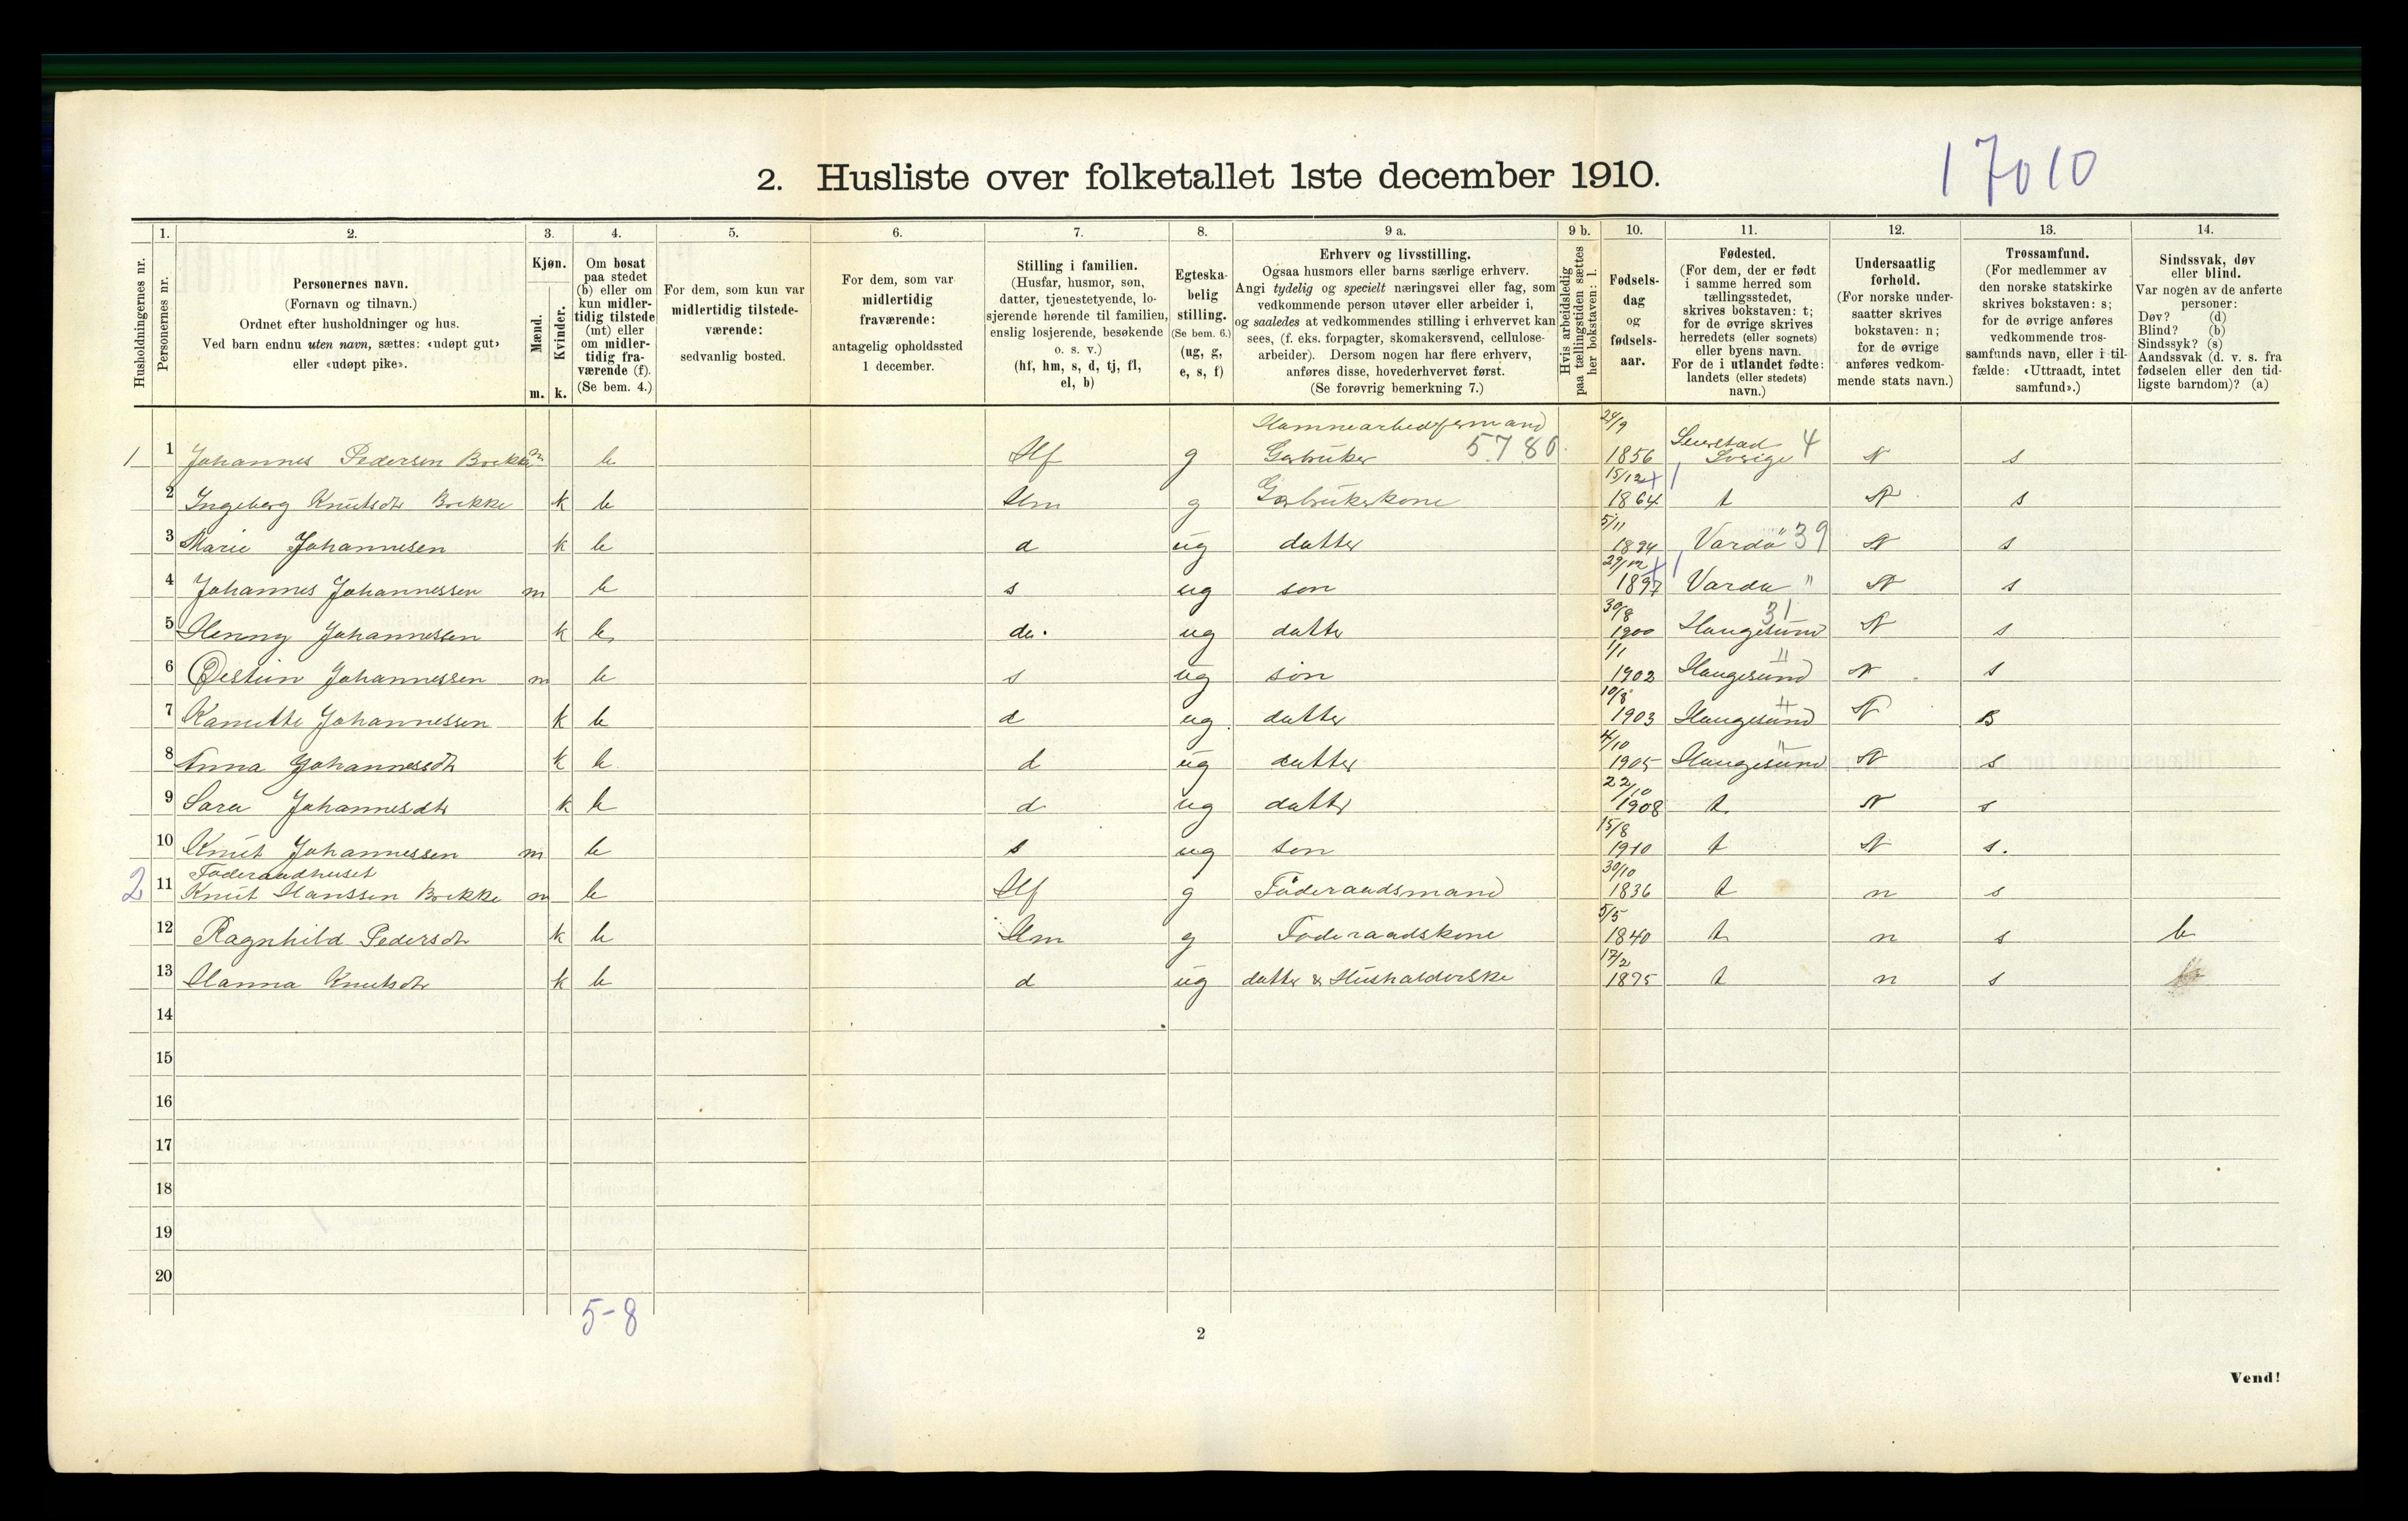 17010
2. Husliste over folketallet 1ste december 1910.
Husholdningernes nr.
1.
Personernes nr.
2.
Personernes navn.
(Fornavn og tilnavn.)
Ordnet efter husholdninger og hus.
Ved barn endnu uten navn, sættes: «udøpt gut»
eller «udøpt pike».
3.
Kjøn.
Mænd.
Kvinder.
m. k.
4.
Om bosat
paa stedet
(b) eller om
kun midler-
tidig tilstede
(mt) eller
om midler-
tidig fra-
værende (f).
(Se bem. 4.)
5.
For dem, som kun var
midlertidig tilstede-
værende:
sedvanlig bosted.
6.
For dem, som var
midlertidig
fraværende:
antagelig opholdssted
1 december.
7.
Stilling i familien.
(Husfar, husmor, søn,
datter, tjenestetyende, lo-
sjerende hørende til familien,
enslig losjerende, besøkende
o. s. v.)
(hf, hm, s, d, tj, fl,
el, b)
8.
Egteska-
belig
stilling.
(Se bem. 6.)
(ug, g,
e, s, f)
9 a.
Erhverv og livsstilling.
Ogsaa husmors eller barns særlige erhverv.
Angi tydelig og specielt næringsvei eller fag, som
vedkommende person utøver eller arbeider i,
og saaledes at vedkommendes stilling i erhvervet kan
sees, (f. eks. forpagter, skomakersvend, cellulose-
arbeider). Dersom nogen har flere erhverv,
anføres disse, hovederhvervet først.
(Se forøvrig bemerkning 7.)
9 b.
Hvis arbeidsledig
paa tællingstiden sættes
her bokstaven: l.
10.
Fødsels-
dag
og
fødsels-
aar.
11.
Fødested.
(For dem, der er født
i samme herred som
tællingsstedet,
skrives bokstaven: t;
for de øvrige skrives
herredets (eller sognets)
eller byens navn.
For de i utlandet fødte:
landets (eller stedets)
navn.)
12.
Undersaatlig
forhold.
(For norske under-
saatter skrives
bokstaven: n;
for de øvrige
anføres vedkom-
mende stats navn.)
13.
Trossamfund.
(For medlemmer av
den norske statskirke
skrives bokstaven: s;
for de øvrige anføres
vedkommende tros-
samfunds navn, eller i til-
fælde: «Uttraadt, intet
samfund».)
14.
Sindssvak, døv
eller blind.
Var nogen av de anførte
personer:
Døv? (d)
Blind? (b)
Sindssyk? (s)
Aandssvak (d. v. s. fra
fødselen eller den tid-
ligste barndom)? (a)
24/9
1 1 Johannes Pedersen Brekke m b Hf g Garbruker 5780 1856 Sverige 4 N s
15/12
2 Ingeberg Knutsdtr Brekke k b Hm g Garbrukerkone 1864 t N s
5/11
3 Marie Johannesen k b d ug datter 1894 Vardö 39 N s
29/12
4 Johannes Johannessen m b s ug son 1897 Vardö " N s
30/8 31
5 Henny Johannessen k b d ug datter 1900 Haugesund N s
1/1
6 Østein Johannessen m b s ug sön 1902 Haugesund " N s
10/8
7 Kamitte Johannessen k b d ug datter 1903 Haugesund " N B
4/10
8 Anna Johannessdtr k b d ug datter 1905 Haugesund " N s
22/10
9 Sara Johannesdtr k b d ug datter 1908 t N s
15/8
10 Knut Johannessen m b s ug sön 1910 t N s.
Föderaadhuset 30/10
2 11 Knut Hanssen Brekke m b Hf g Föderaadsmand 1836 t n s
5/5
12 Ragnhild Pedersdtr k b Hm g Föderaadskone 1840 t n s b
17/2
13 Hanna Knutsdtr k b d ug datter & Husholderske 1875 t n s
14
15
16
17
18
19
20
5-8
2
Vend!